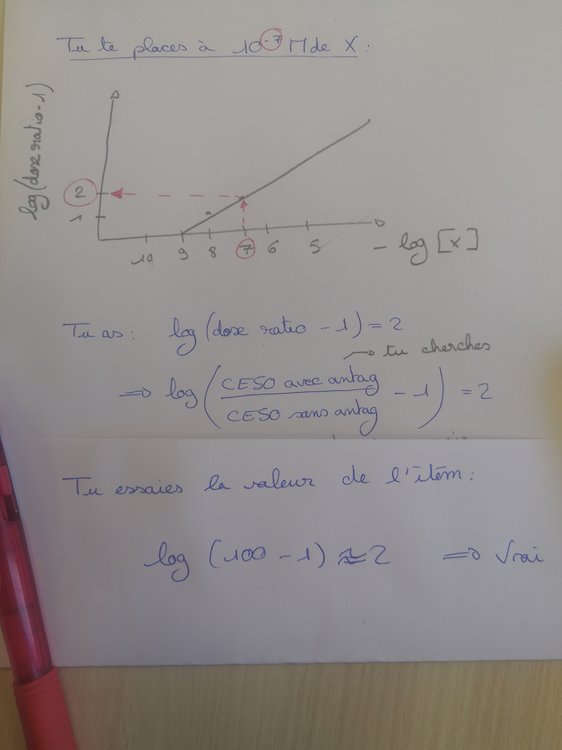 Tu te places à 10⁻⁷ M de X :
log (dose ratio - 1)
2
1
10 9 8 7 6 5
- log [X]
Tu as : log (dose ratio - 1) = 2
→ tu cherches
⇒ log (CE50 avec antag / CE50 sans antag - 1) = 2
Tu essaies la valeur de l'item :
log (100 - 1) ≈ 2 ⇒ Vrai